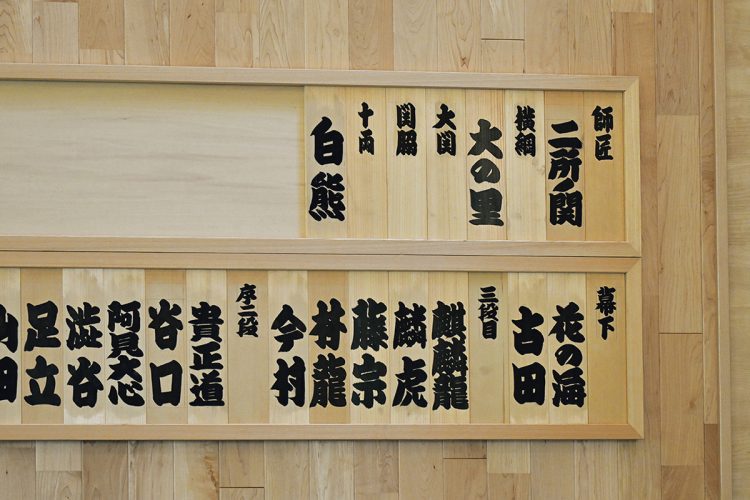 師匠
二所ノ関
横綱
大の里
大関
関脇
十両
白熊
幕下
花の海
古田
三段目
麒麟龍
麟虎
藤宗
村龍
今村
序二段
貴正道
谷口
阿見大心
澁谷
足立